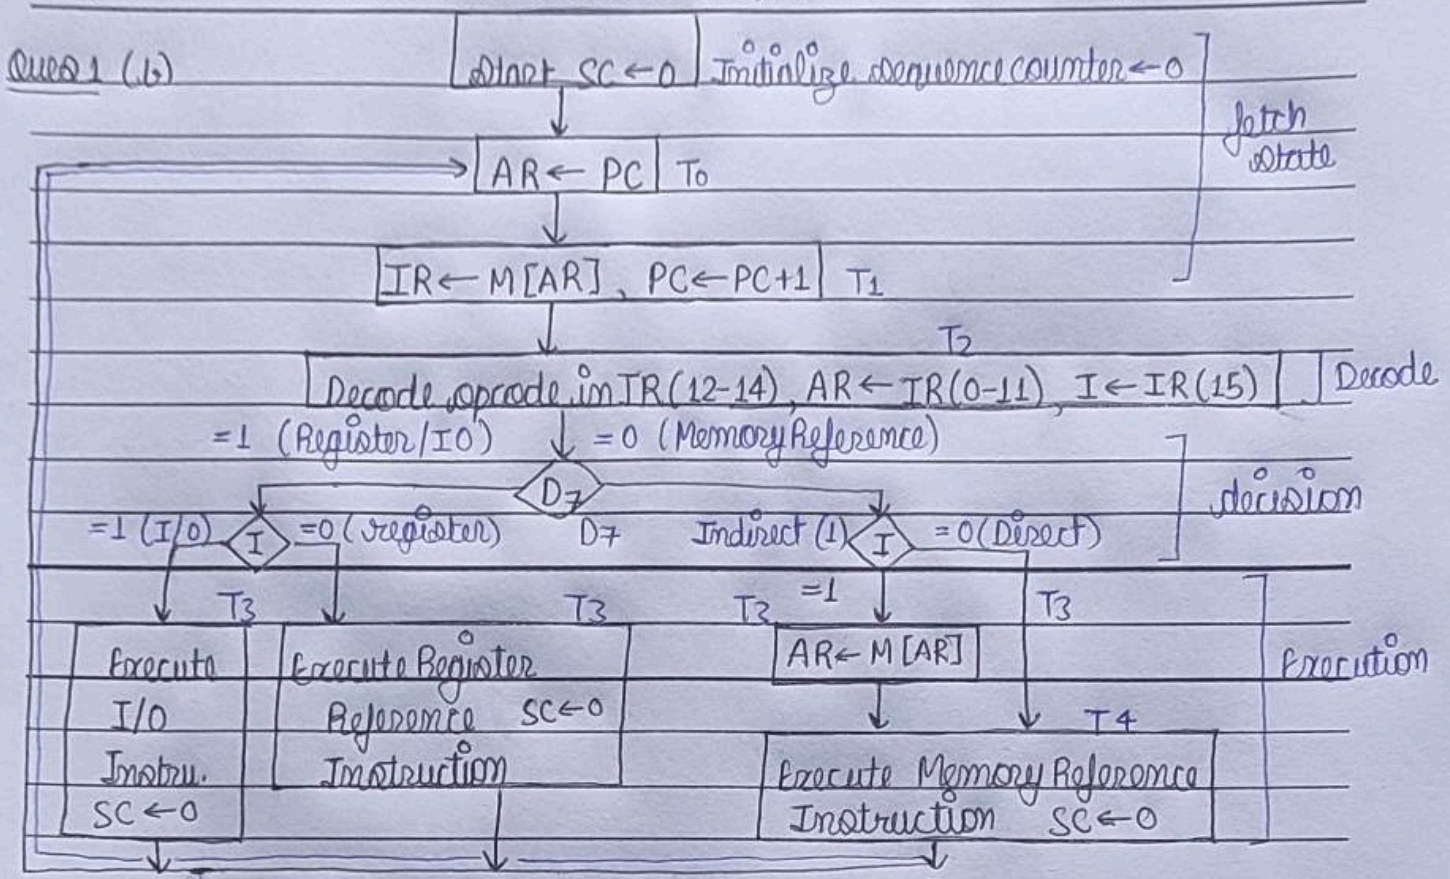 Ques 1 (b)
Start SC ← 0 Initialize sequence counter ← 0
fetch
state
AR ← PC T0
IR ← M[AR], PC ← PC+1 T1
T2
Decode opcode in IR(12-14), AR ← IR(0-11), I ← IR(15) Decode
=1 (Register/IO) =0 (Memory Reference)
D7
decision
=1 (I/O) I =0 (register) D7 Indirect (1) I =0 (Direct)
T3 T3 T3 =1 T3
Execute Execute Register AR ← M[AR] Execution
I/O Reference SC ← 0 T4
Instru. Instruction Execute Memory Reference
SC ← 0 Instruction SC ← 0